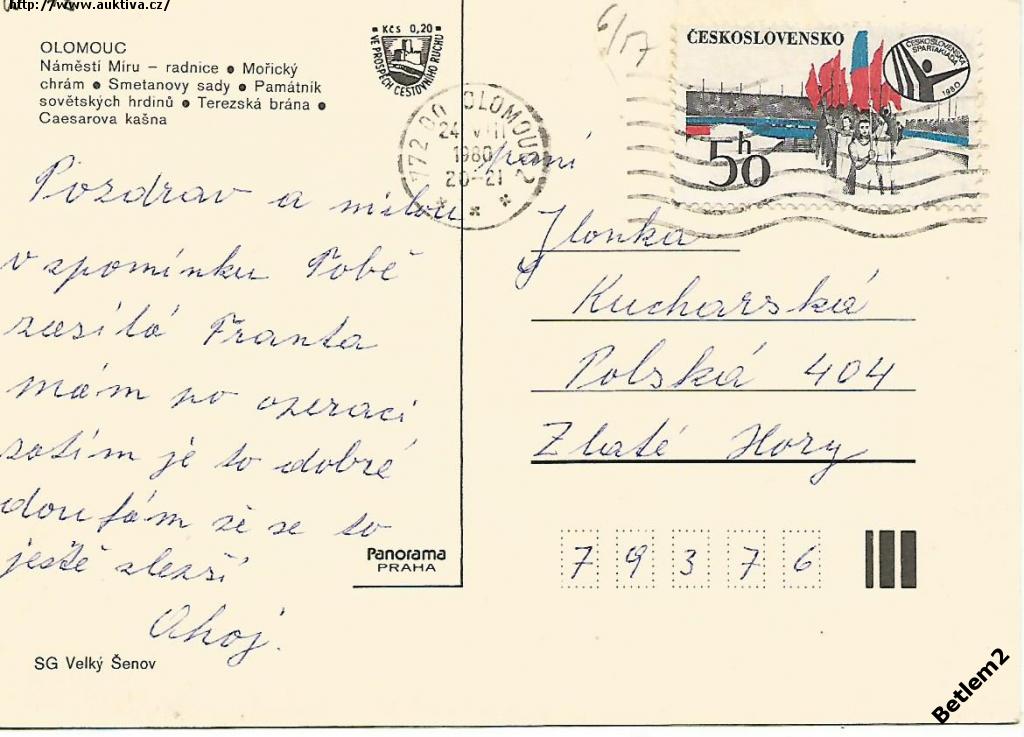 http://www.auktiva.cz/
OLOMOUC
Náměstí Míru – radnice ● Mořický
chrám ● Smetanovy sady ● Památník
sovětských hrdinů ● Terezská brána ●
Caesarova kašna
Kčs 0,20
VE PROSPĚCH CESTOVNÍHO RUCHU
772 00 OLOMOUC 2
24.VIII
1980
20-21
6/17
ČESKOSLOVENSKO
ČESKOSLOVENSKÁ SPARTAKIÁDA 1980
50h
Pozdrav a milou
vzpomínku Tobě
zasílá Franta
mám po operaci
zatím je to dobré
doufám že se to
ještě zlepší
Ahoj.
paní
Jlonka
Kucharská
Polská 404
Zlaté Hory
79376
Panorama
PRAHA
SG Velký Šenov
Betlem2